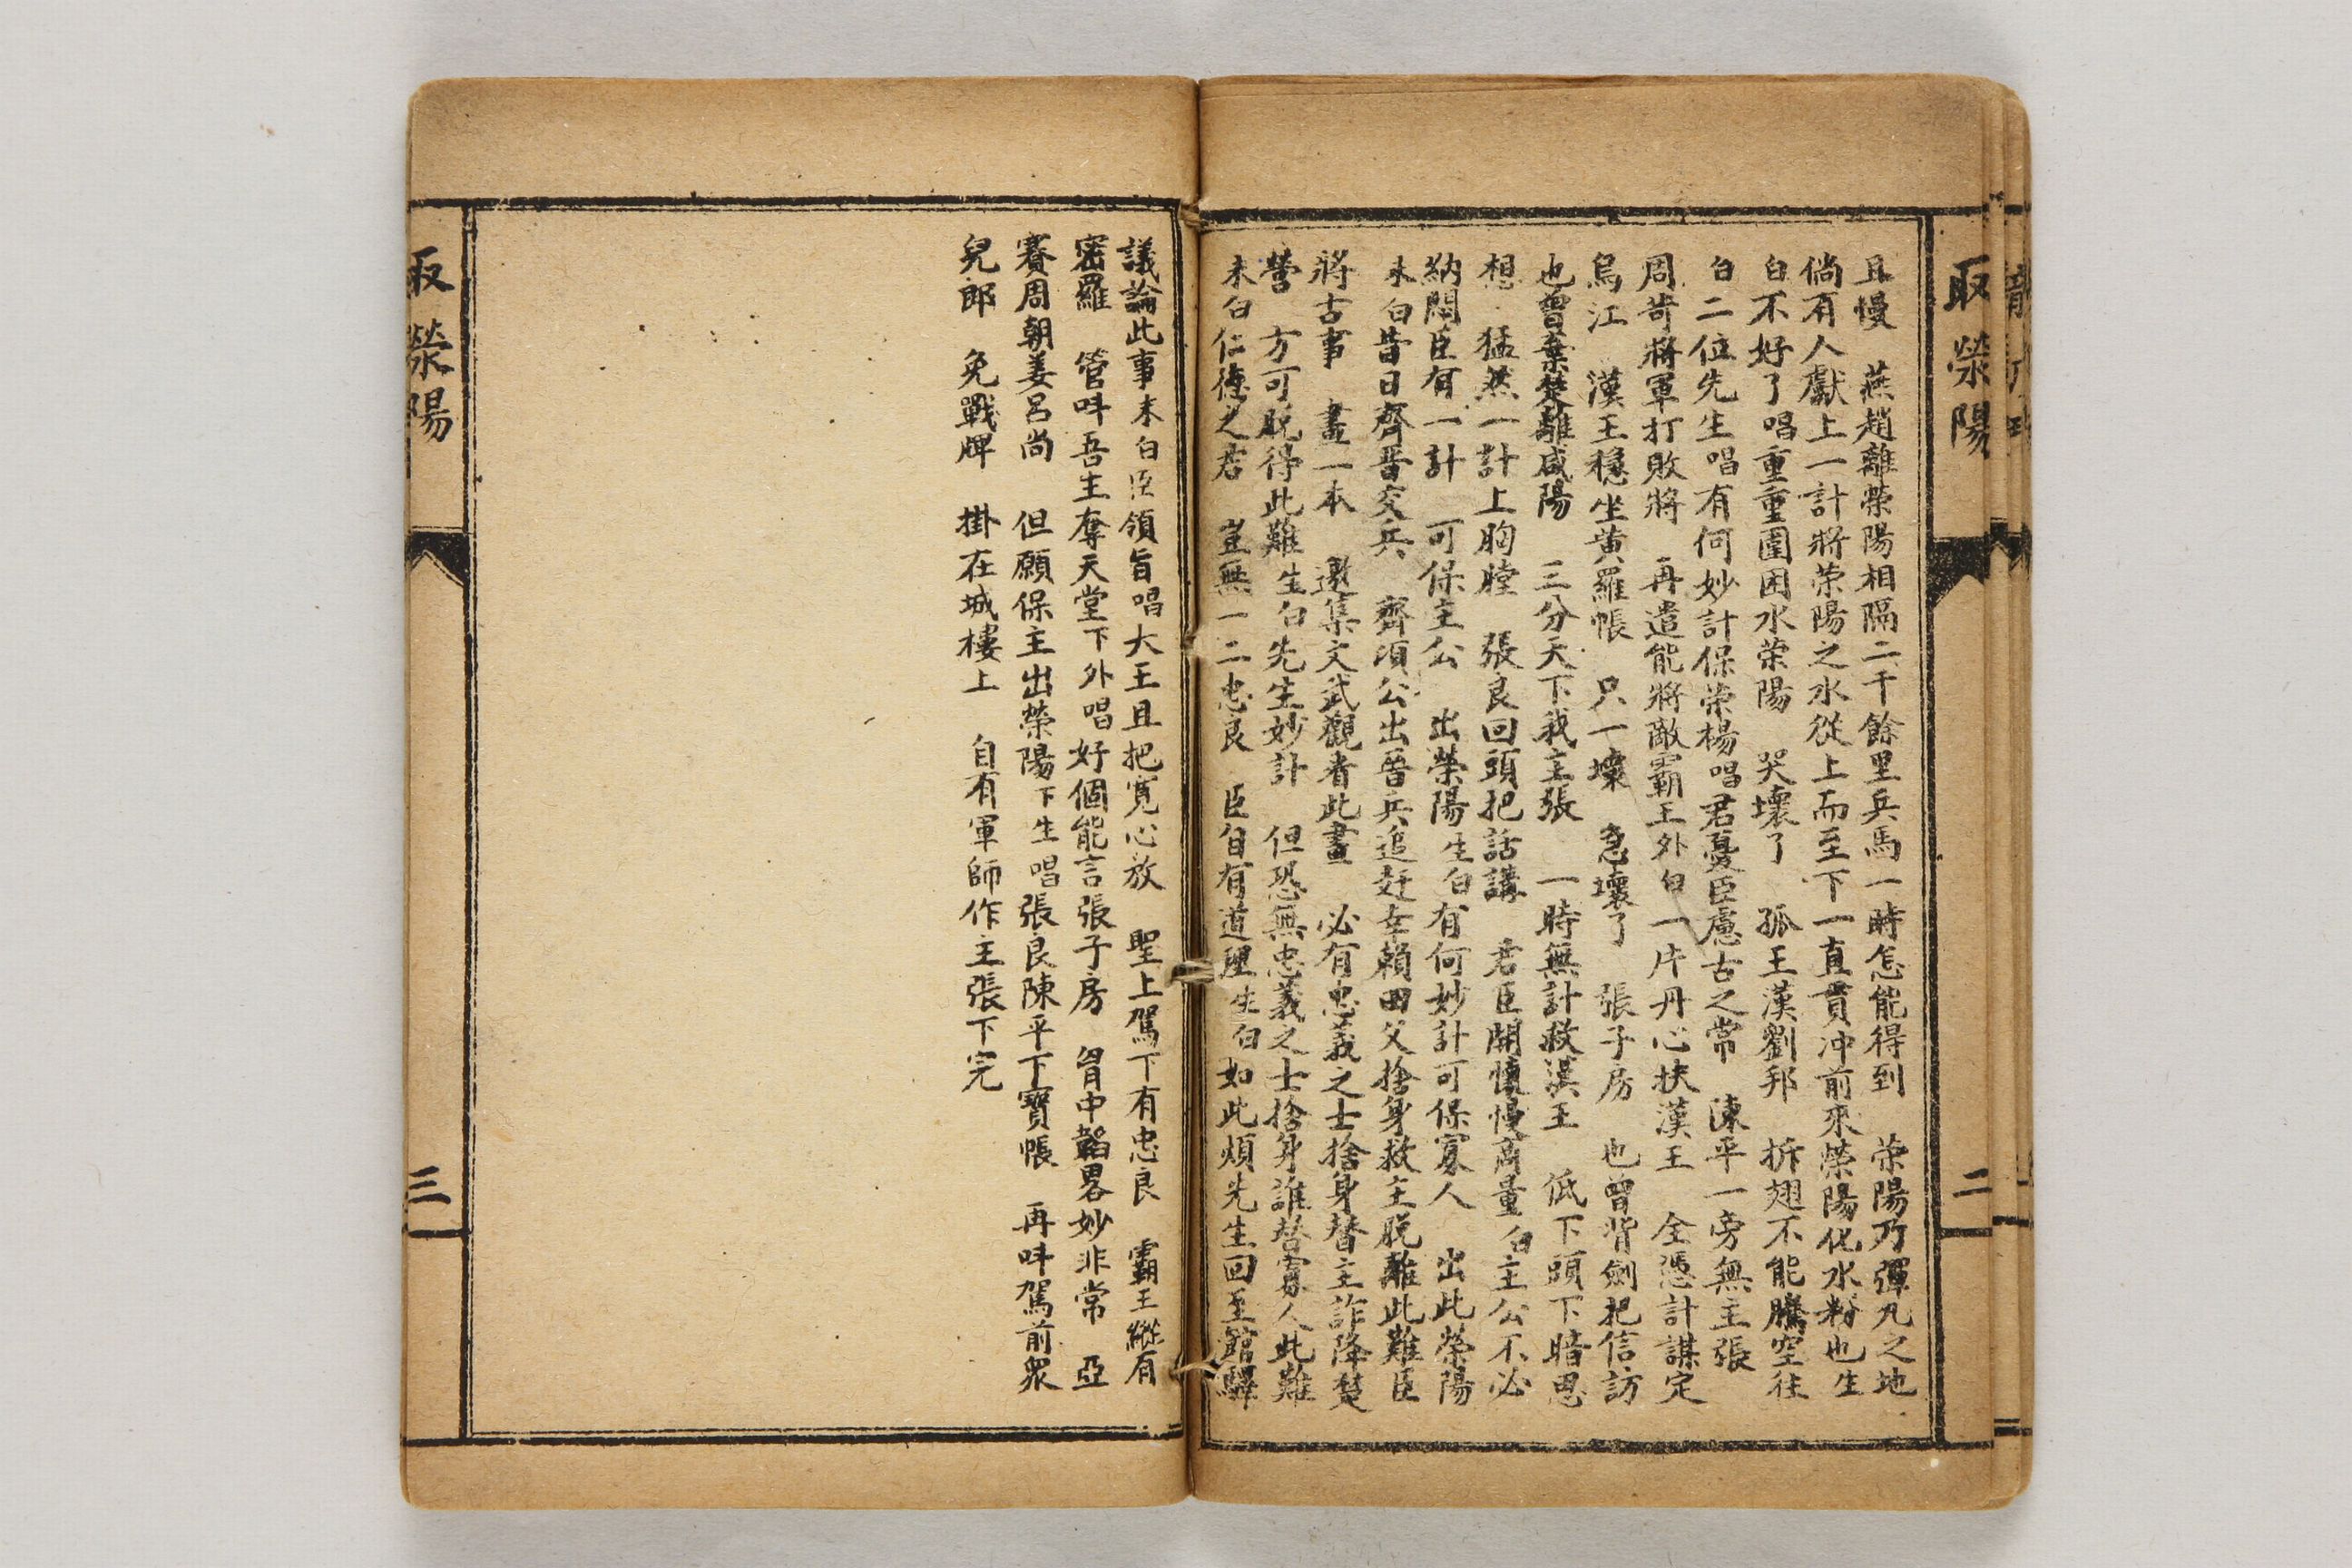 取滎陽
二
且慢 燕趙離荣陽相隔二千餘里兵馬一時怎能得到 荣陽乃彈丸之地
倘有人獻上一計將荣陽之水從上而至下一直貫冲前來榮陽化水粉也生
白不好了唱重重圍困水荣陽 哭壞了 孤王漢劉邦 拆翅不能騰空往
白二位先生唱有何妙計保荣楊唱君憂臣慮古之常 陳平一旁無主張
周苛將軍打敗將 再遣能將敵霸王外白一片丹心扶漢王 全憑計謀定
烏江 漢王穩坐黄羅帳 只一壞 急壞了 張子房 也曾背劍把信訪
也曾棄楚離咸陽 三分天下我主張 一時無計救漢王 低下頭下暗思
想 猛然一計上胸膛 張良回頭把話講 君臣開懷慢商量白主公不必
納悶臣有一計 可保主公 出榮陽生白有何妙計可保寡人 出此荣陽
末白昔日齊晋交兵 齊頃公出晉兵追赶幸賴田父捨身救主脱離此難臣
將古事 畫一本 邀集文武觀看此畫 必有忠義之士捨身替主詐降楚
營 方可脱得此難生白先生妙計 但恐無忠義之士捨身誰替寡人此難
末白仁德之君 豈無一二忠良 臣自有道理生白如此煩先生回至館驛
議論此事末白臣領旨唱大王且把寬心放 聖上駕下有忠良 霸王縱有
密羅 管呌吾主奪天堂下外唱好個能言張子房 胷中韜畧妙非常 亞
賽周朝姜呂尚 但願保主出榮陽下生唱張良陳平下寶帳 再呌駕前衆
兒郎 免戰牌 掛在城樓上 自有軍師作主張下完
取滎陽
三